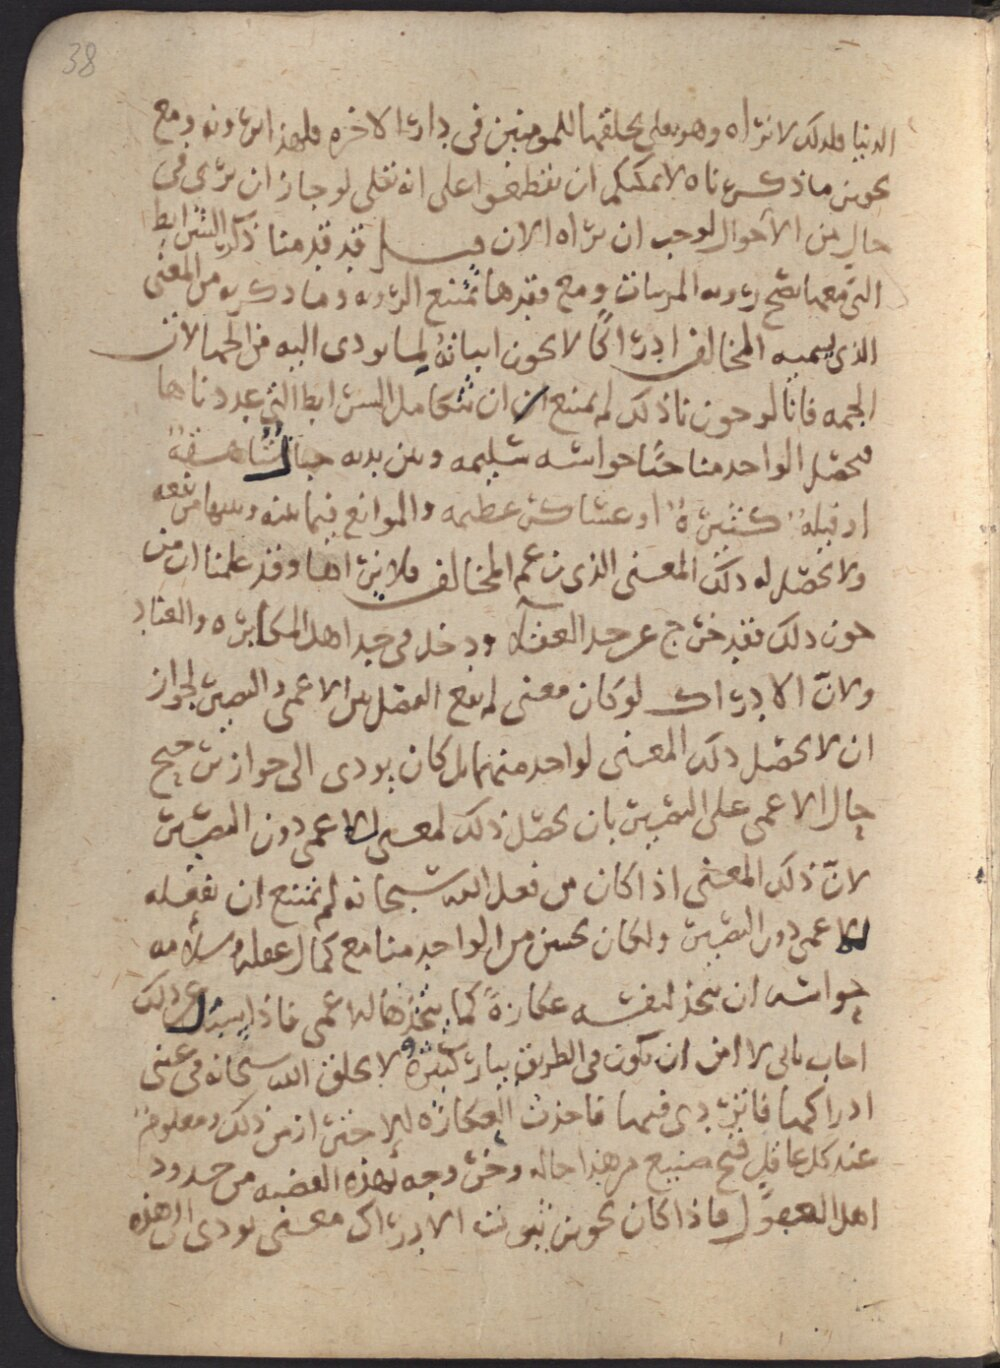 38
الدنيا فلذلك لا نراه وهو تعلى يخلقها للمومنين في دار الاخره فلهذا يرونه ومع
تجويز ما ذكرناه لا يمكنكم ان تقطعوا على انه تعلى لو جاز ان يرى في
حال من الاحوال لوجب ان نراه الان قد قدمنا ذكر الشرايط
التي معها تصح رويه المرييات ومع فقدها تمتنع الرويه وما ذكروه من المعنى
الذي يسميه المخالف ادراكًا لا يجوز اثباته لما يودي اليه من الجهالات
الجمه فانا لو جوزنا ذلك لم يمتنع ان تتكامل الشرايط التي عددناها
فيحصل الواحد منا حيًا حواسه سليمه وبين يديه جبال شاهقة
او فيلة كثيرة او عساكر عظيمه والموانع فيما بينه وبينها مرتفعه
ولا يحصل له ذلك المعنى الذي زعم المخالف فلا يراها وقد علمنا ان من
جوز ذلك فقد خرج عن حد العقلآ ودخل في حد اهل المكابره والعناد
ولانّ الادراك لو كان معنى لم يقع الفصل بين الاعمى والبصير لجواز
ان لا يحصل ذلك المعنى لواحد منهما بل كان يودي الى جواز ترجيح
حال الاعمى على البصير بان يحصل ذلك المعنى للاعمى دون البصير
لانّ ذلك المعنى اذا كان من فعل الله سبحانه لم يمتنع ان يفعله
للاعمى دون البصير ولكان يحسن من الواحد منا مع كمال عقله وسلامه
حواسه ان يتخذ لنفسه عكازةً كما يتخذها الاعمى فاذا سيل عن ذلك
اجاب باني لا امن ان تكون في الطريق بيار كثيرة لا يخلق الله سبحانه في عيني
ادراكها فاتردى فيها فاخذت العكازه للاحتراز من ذلك ومعلوم
عند كل عاقل قبح صنيع من هذا حاله وخروجه بهذه القضيه من حدود
اهل العقول فاذا كان تجويز ثبوت الادراك معنى يودي الى هذه